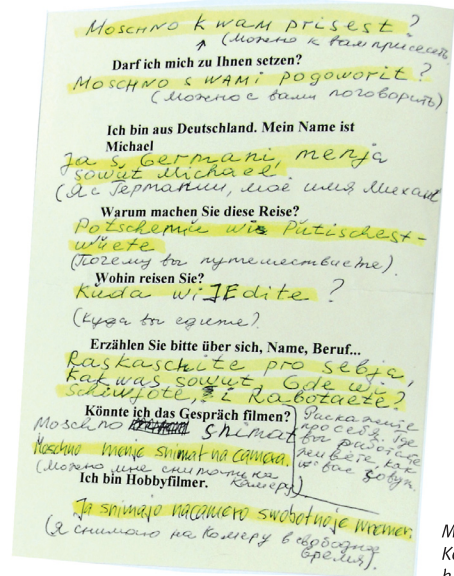 Moschno k wam prisest?
(Можно к вам присесть.
Darf ich mich zu Ihnen setzen?
Moschno s wami pogoworit?
(Можно с вами поговорить)
Ich bin aus Deutschland. Mein Name ist
Michael
Ja s Germani, menja
sowut Michael.
(Я с Германии, моё имя Михаил
Warum machen Sie diese Reise?
Potschemu wi Putischest-
wuete
(Почему вы путешествуете).
Wohin reisen Sie?
Kuda wi JEdite?
(Куда вы едите?
Erzählen Sie bitte über sich, Name, Beruf...
Raskaschite pro sebja,
kak was sowut, Gde wi
schiwjote, i Rabotaete?
Könnte ich das Gespräch filmen?
Moschno snimat
Moschno menje snimat na camera.
(Можно мне снимать на
камеру)
Раскажите
про себя, где
вы работае
как
вас зовут.
Ich bin Hobbyfilmer.
Ja snimajo nacamero swobotnoje wremer.
(Я снимаю на камеру в свободное
время).
M
K
h